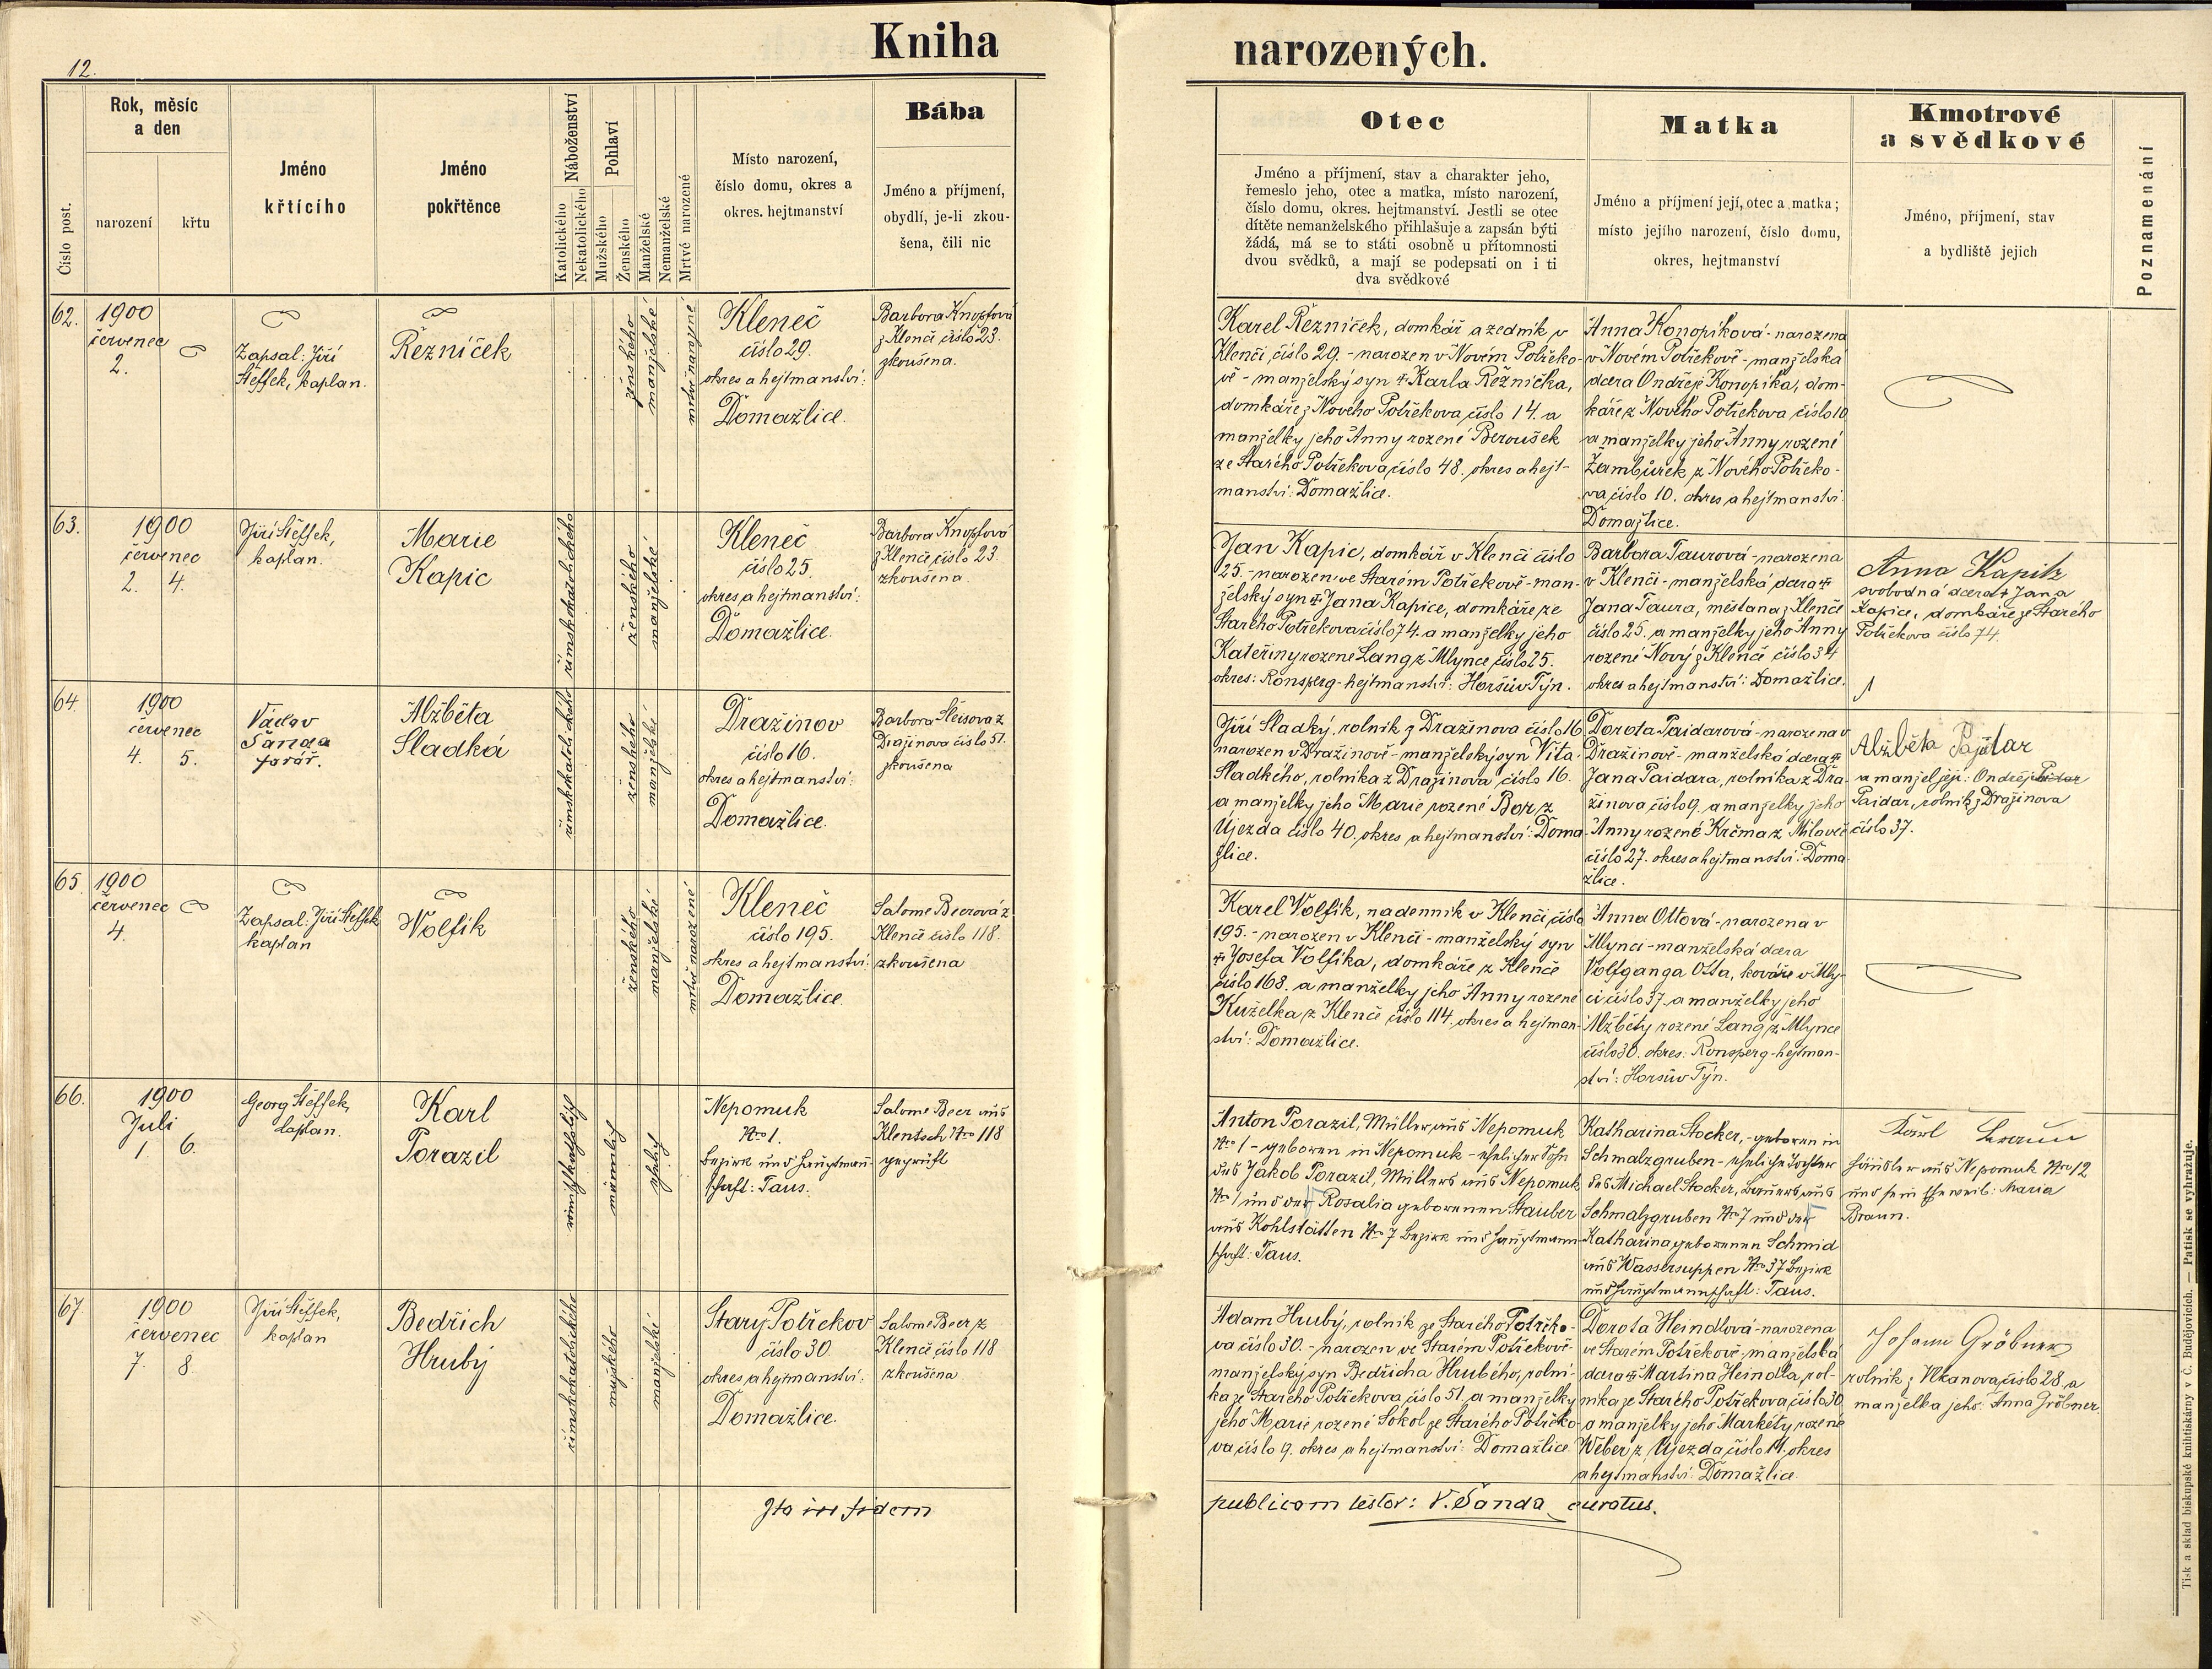 12.
Kniha narozených.
Číslo post.
Rok, měsíc
a den
narození
křtu
Jméno
křtícího
Jméno
pokřtěnce
Náboženství
Katolického
Nekatolického
Pohlaví
Mužského
Ženského
Manželské
Nemanželské
Mrtvé narozené
Místo narození,
číslo domu, okres a
okres. hejtmanství
Bába
Jméno a příjmení,
obydlí, je-li zkou-
šena, čili nic
Otec
Jméno a příjmení, stav a charakter jeho,
řemeslo jeho, otec a matka, místo narození,
číslo domu, okres. hejtmanství. Jestli se otec
dítěte nemanželského přihlašuje a zapsán býti
žádá, má se to státi osobně u přítomnosti
dvou svědků, a mají se podepsati on i ti
dva svědkové
Matka
Jméno a příjmení její, otec a matka;
místo jejího narození, číslo domu,
okres, hejtmanství
Kmotrové
a svědkové
Jméno, příjmení, stav
a bydliště jejich
Poznamenání
62.
1900
červenec
2.
Zapsal: Jiří
Šteffek, kaplan.
Řezníček
ženského
manželské
mrtvě narozené
Kleneč
číslo 29.
okres a hejtmanství:
Domažlice.
Barbora Knopfová
z Klenčí číslo 23.
zkoušena.
Karel Řezníček, domkář a zedník v
Klenčí, číslo 29. - narozen v Novém Potřeko-
vě - manželský syn † Karla Řezníčka,
domkáře z Nového Potřekova číslo 14. a
manželky jeho Anny rozené Beroušek
ze Starého Potřekova číslo 48. okres a hejt-
manství: Domažlice.
Anna Konopíková - narozena
v Novém Potřekově - manželská
dcera Ondřeje Konopíka, dom-
káře z Nového Potřekova číslo 10
a manželky jeho Anny rozené
Žambůrek z Nového Potřeko-
va číslo 10. okres a hejtmanství
Domažlice.
63.
1900
červenec
2. 4.
Jiří Šteffek,
kaplan.
Marie
Kapic
římskokatolického
ženského
manželské
Kleneč
číslo 25.
okres a hejtmanství:
Domažlice.
Barbora Knopfová
z Klenčí číslo 23
zkoušena.
Jan Kapic, domkář v Klenčí číslo
25. - narozen ve Starém Potřekově - man-
želský syn † Jana Kapice, domkáře ze
Starého Potřekova číslo 74. a manželky jeho
Kateřiny rozené Lang z Mlynce číslo 25.
okres: Ronsperg - hejtmanství: Horšův Týn.
Barbora Taurová - narozena
v Klenčí - manželská dcera †
Jana Taura, měšťana z Klenčí
číslo 25. a manželky jeho Anny
rozené Nový z Klenčí číslo 34
okres a hejtmanství: Domažlice.
Anna Kapitz
svobodná dcera † Jana
Kapice, domkáře ze Starého
Potřekova číslo 74.
64.
1900
červenec
4. 5.
Václav
Šanda
farář.
Alžběta
Sladká
římskokatolického
ženského
manželské
Dražinov
číslo 16.
okres a hejtmanství:
Domažlice.
Barbora Šleisová z
Dražinova číslo 51.
zkoušena
Jiří Sladký, rolník z Dražinova číslo 16
narozen v Dražinově - manželský syn Víta
Sladkého, rolníka z Dražinova číslo 16.
a manželky jeho Marie rozené Bor z
Újezda číslo 40. okres a hejtmanství: Doma-
žlice.
Dorota Paidarová - narozena v
Dražinově - manželská dcera †
Jana Paidara, rolníka z Dra-
žinova číslo 9. a manželky jeho
Anny rozené Krčma z Milaveč
číslo 27. okres a hejtmanství: Doma-
žlice.
Alžběta Pajdar
a manžel její: Ondřej Paidar
Paidar, rolník z Dražinova
číslo 37.
65.
1900
červenec
4.
Zapsal: Jiří Šteffek
kaplan
Volfík
ženského
manželské
mrtvě narozené
Kleneč
číslo 195.
okres a hejtmanství:
Domažlice.
Salome Beerová z
Klenčí číslo 118.
zkoušena
Karel Volfík, nadenník v Klenčí, číslo
195. - narozen v Klenčí - manželský syn
† Josefa Volfíka, domkáře z Klenčí
číslo 168. a manželky jeho Anny rozené
Kuželka z Klenčí číslo 114. okres a hejtman-
ství: Domažlice.
Anna Ottová - narozena v
Mlynci - manželská dcera
Volfganga Otta, kováře v Mlyn-
ci číslo 37. a manželky jeho
Alžběty rozené Lang z Mlynce
číslo 30. okres: Ronsperg - hejtman-
ství: Horšův Týn.
66.
1900
Juli
1 6.
Georg Šteffek,
kaplan.
Karl
Porazil
römischkatholisch
männlich
ehelich
Nepomuk
Nro 1.
Bezirk und Hauptmann-
schaft: Taus.
Salome Beer aus
Klentsch Nro 118
geprüft
Anton Porazil, Müller aus Nepomuk
Nro 1 - geboren in Nepomuk - ehelicher Sohn
des Jakob Porazil, Müllers aus Nepomuk
Nro 1 und der Rosalia geborenen Stauber
aus Kohlstätten Nro 7 Bezirk und Hauptmann-
schaft: Taus.
Katharina Stocker, - geboren in
Schmalzgruben - eheliche Tochter
des Michael Stocker, Bauers aus
Schmalzgruben Nro 7 und der
Katharina geborenen Schmid
aus Wassersuppen Nro 37 Bezirk
und Hauptmannschaft: Taus.
Karl Braun
Häusler aus Nepomuk Nro 12
und sein Eheweib: Maria
Braun.
67.
1900
červenec
7. 8.
Jiří Šteffek,
kaplan
Bedřich
Hrubý
římskokatolického
mužského
manželské
Starý Potřekov
číslo 30.
okres a hejtmanství:
Domažlice.
Salome Beer z
Klenčí číslo 118
zkoušena
Adam Hrubý, rolník ze Starého Potřeko-
va číslo 30. - narozen ve Starém Potřekově-
manželský syn Bedřicha Hrubého, rolní-
ka ze Starého Potřekova číslo 51. a manželky
jeho Marie rozené Sokol ze Starého Potřeko-
va číslo 9. okres a hejtmanství: Domažlice.
Dorota Heindlová - narozena
ve Starém Potřekově - manželská
dcera † Martina Heindla, rol-
níka ze Starého Potřekova číslo 30
a manželky jeho Markéty rozené
Weber z Újezda číslo 14. okres
a hejtmanství: Domažlice.
Johann Gröbner
rolník z Vlkanova číslo 28 a
manželka jeho: Anna Gröbner.
Ita in fidem publicam testor: V. Šanda, curatus.
Tisk a sklad biskupské knihtiskárny v Č. Budějovicích. — Patisk se vyhražuje.